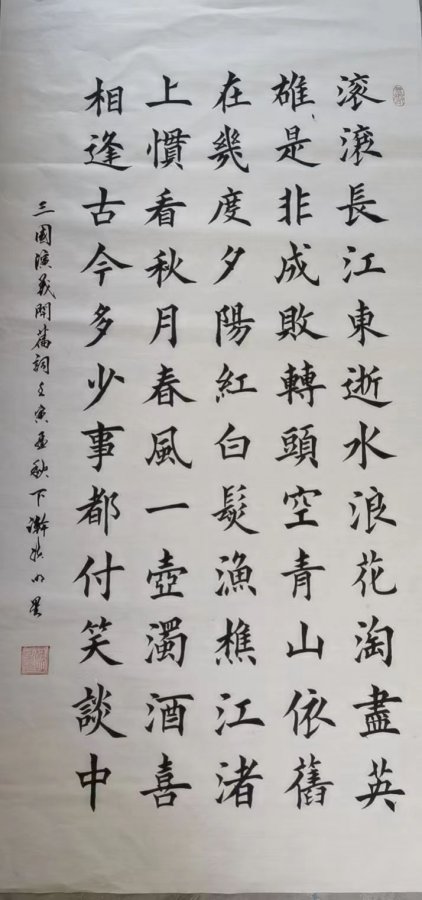 滚滚長江東逝水浪花淘盡英
雄是非成敗轉頭空青山依舊
在幾度夕陽紅白髮漁樵江渚
上慣看秋月春風一壺濁酒喜
相逢古今多少事都付笑談中
三國演義開篇詞壬寅孟秋下澣